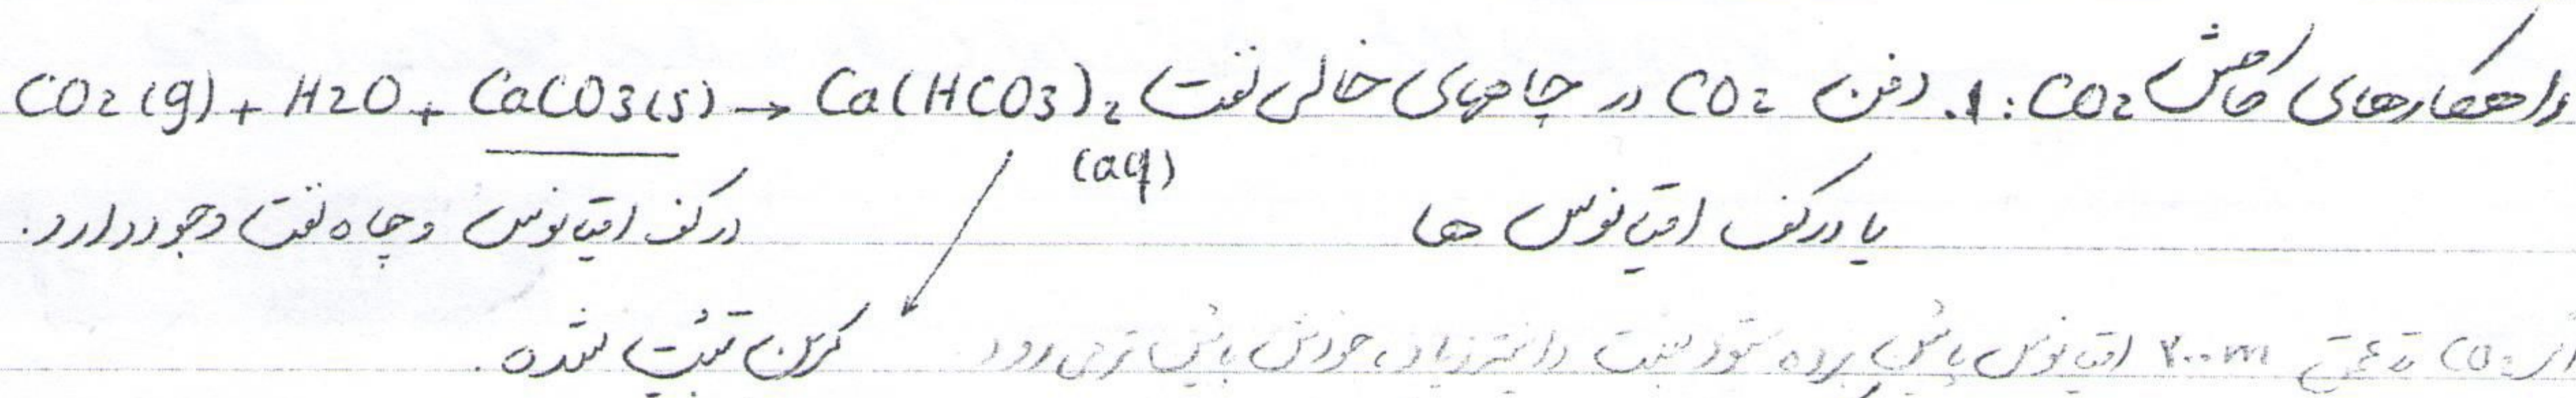 راهکارهای کاهش CO2: 1. دفن CO2 در چاههای خالی نفت CO2(g) + H2O + CaCO3(s) → Ca(HCO3)2 (aq)
یا در کف اقیانوس ها
در کف اقیانوس و چاه نفت وجود دارد.
اگر CO2 تا عمق ۲۰۰m اقیانوس پایین برده شود بعلت دانسیته زیاد، خودش پایین تر می رود
کربن تثبیت شده.